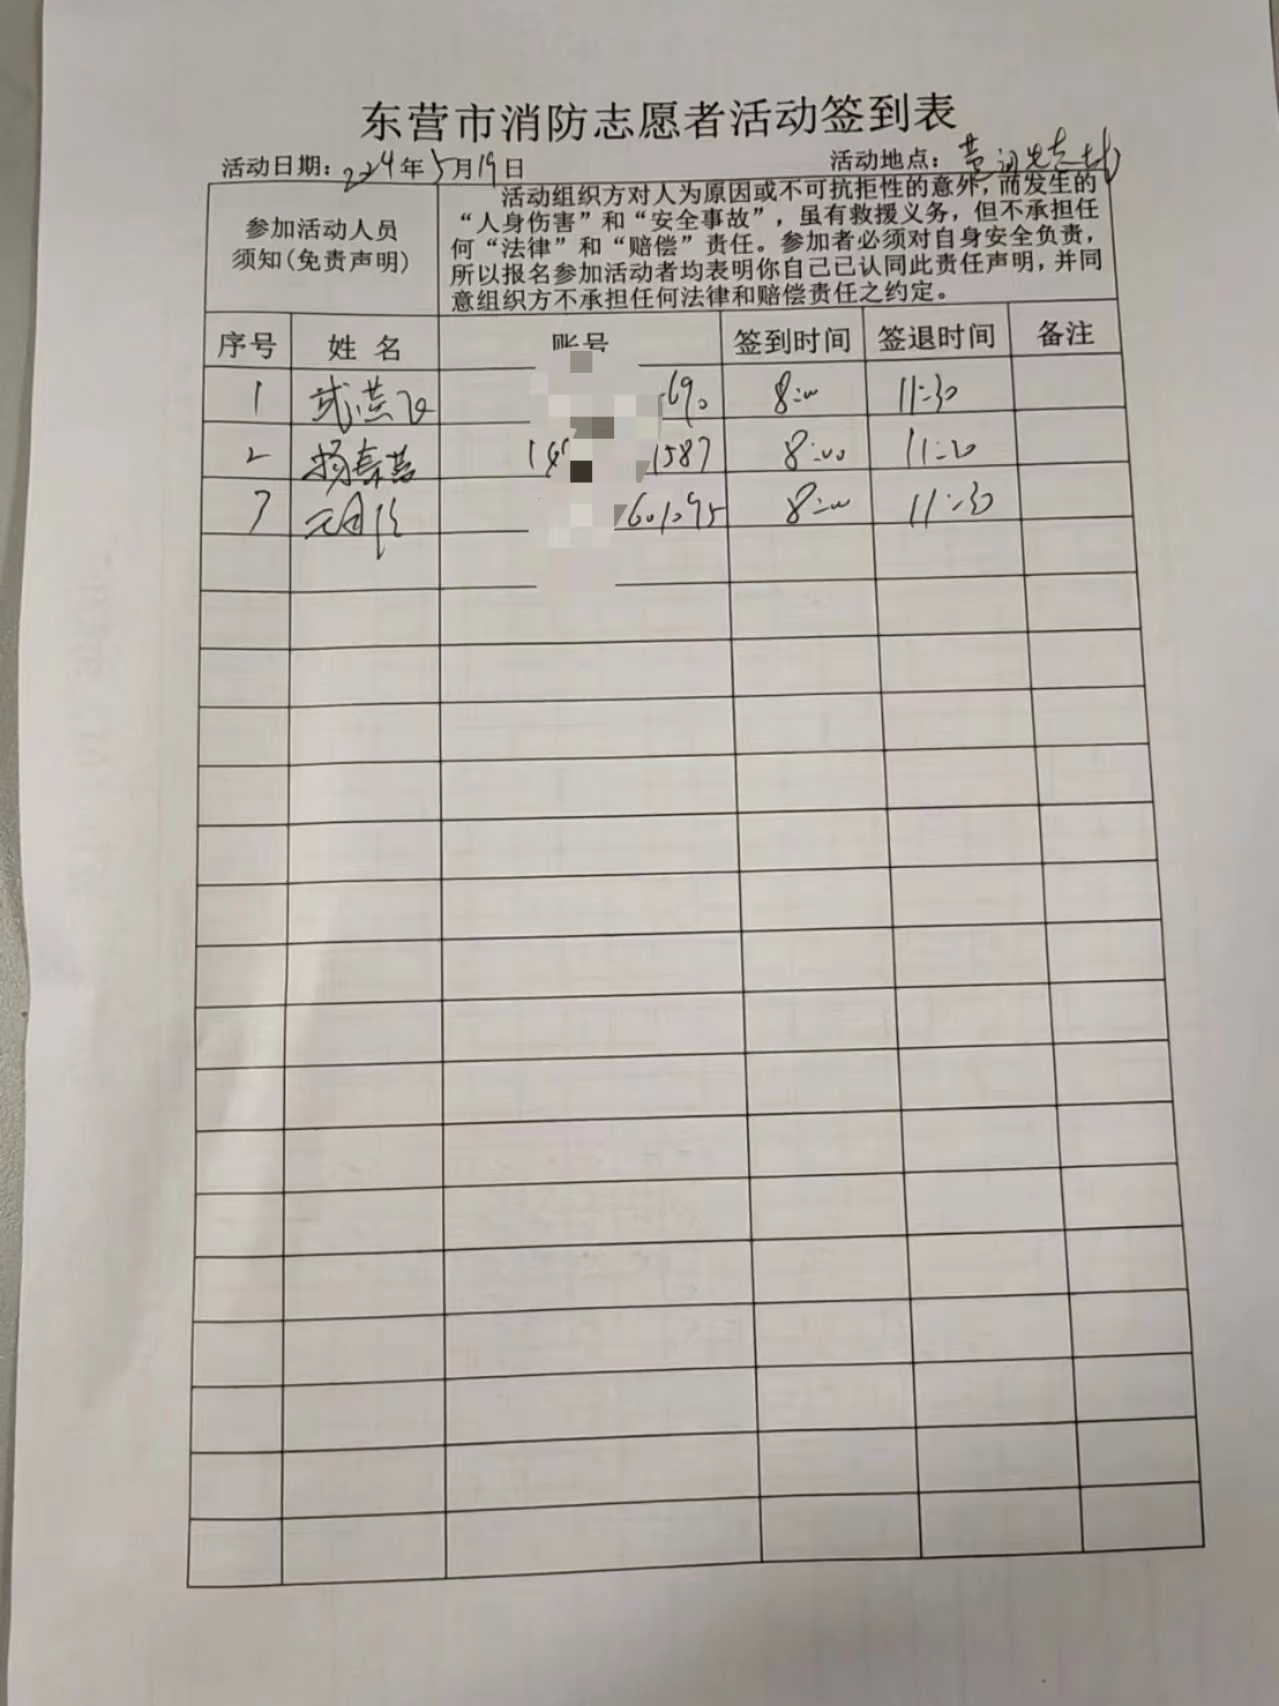 东营市消防志愿者活动签到表
活动日期：2024年5月19日 活动地点：
参加活动人员
须知(免责声明)
活动组织方对人为原因或不可抗拒性的意外，而发生的
“人身伤害”和“安全事故”，虽有救援义务，但不承担任
何“法律”和“赔偿”责任。参加者必须对自身安全负责，
所以报名参加活动者均表明你自己已认同此责任声明，并同
意组织方不承担任何法律和赔偿责任之约定。
序号 姓名 账号 签到时间 签退时间 备注
1 武燕飞 690 8:00 11:30
2 杨春营 1587 8:00 11:20
3 601095 8:00 11:30